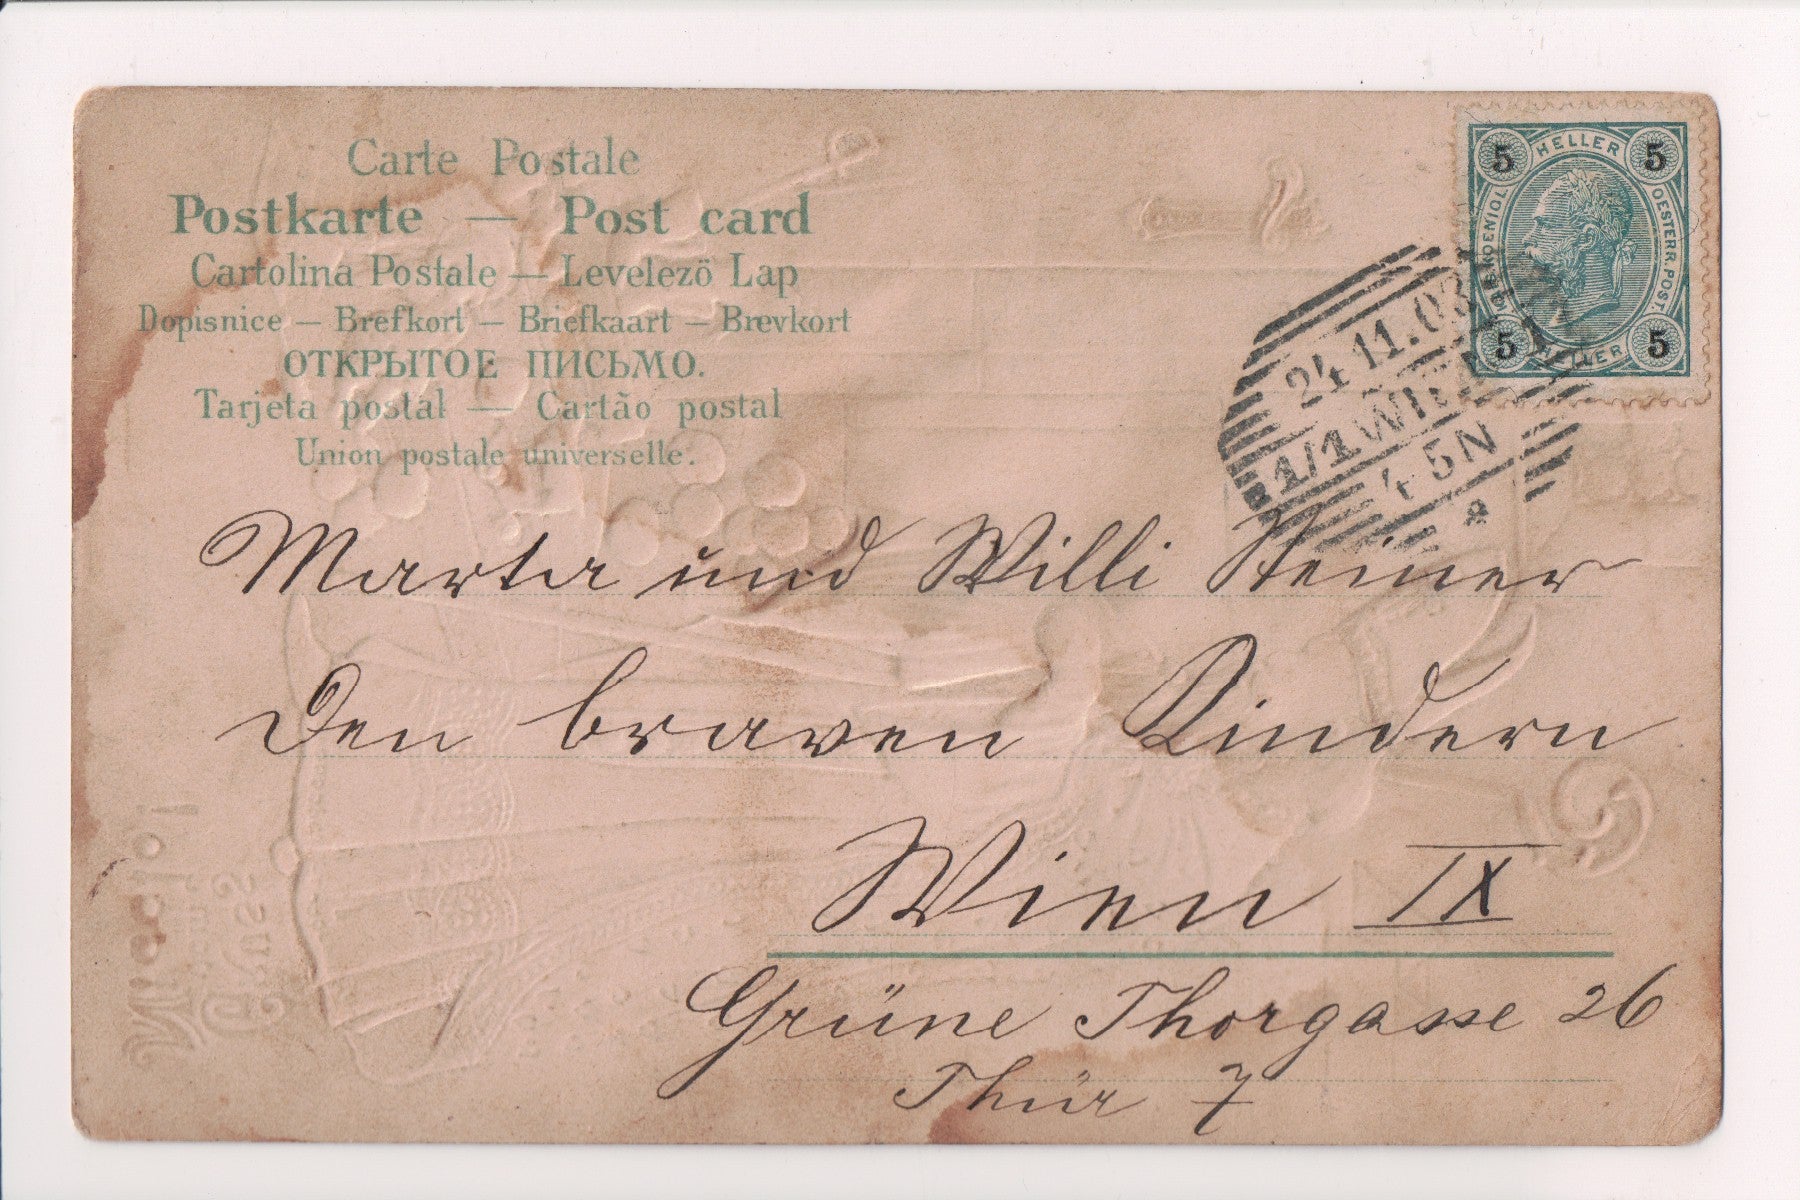 Carte Postale
Postkarte — Post card
Cartolina Postale — Levelező Lap
Dopisnice — Brefkort — Briefkaart — Brevkort
ОТКРЫТОЕ ПИСЬМО.
Tarjeta postal — Cartão postal
Union postale universelle.
5 HELLER 5
OESTERR. POST.
5 HELLER 5
24 11.03
1/1 WIEN 1
4 5N
Marta und Willi Steiner
Den braven Kindern
Wien IX
Grüne Thorgasse 26
Thür 7